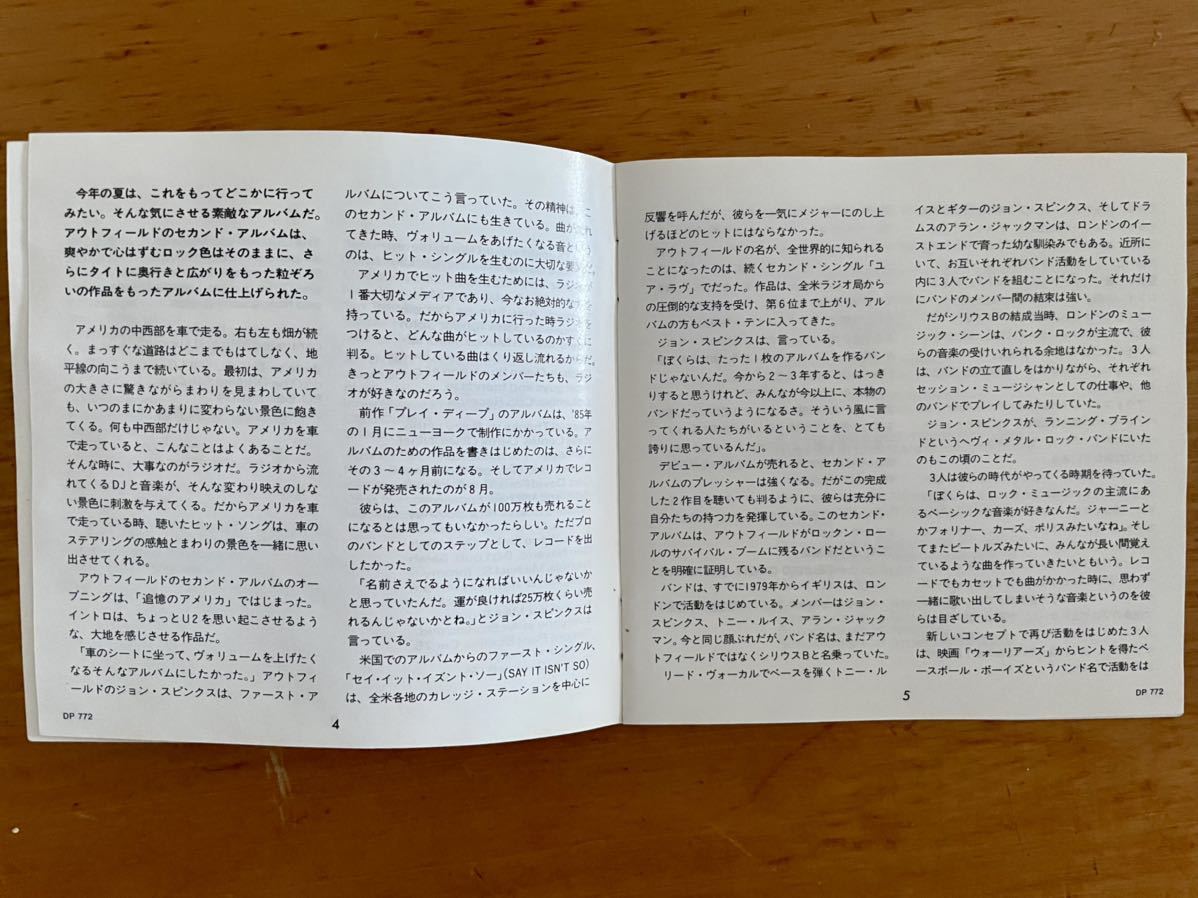 今年の夏は、これをもってどこかに行って
みたい。そんな気にさせる素敵なアルバムだ。
アウトフィールドのセカンド・アルバムは、
爽やかで心はずむロック色はそのままに、さ
らにタイトに奥行きと広がりをもった粒ぞろ
いの作品をもったアルバムに仕上げられた。
アメリカの中西部を車で走る。右も左も畑が続
く。まっすぐな道路はどこまでもはてしなく、地
平線の向こうまで続いている。最初は、アメリカ
の大きさに驚きながらまわりを見まわしていて
も、いつのまにかあまりに変わらない景色に飽き
てくる。何も中西部だけじゃない。アメリカを車
で走っていると、こんなことはよくあることだ。
そんな時に、大事なのがラジオだ。ラジオから流
れてくるDJと音楽が、そんな変わり映えのしな
い景色に刺激を与えてくる。だからアメリカを車
で走っている時、聴いたヒット・ソングは、車の
ステアリングの感触とまわりの景色を一緒に思い
出させてくれる。
アウトフィールドのセカンド・アルバムのオー
プニングは、「追憶のアメリカ」ではじまった。
イントロは、ちょっとU2を思い起こさせるよう
な、大地を感じさせる作品だ。
「車のシートに坐って、ヴォリュームを上げたく
なるそんなアルバムにしたかった。」アウトフィ
ールドのジョン・スピンクスは、ファースト・ア
DP 772
4
ルバムについてこう言っていた。その精神は、こ
のセカンド・アルバムにも生きている。曲が
てきた時、ヴォリュームをあげたくなる音という
のは、ヒット・シングルを生むのに大切な要
アメリカでヒット曲を生むためには、ラジオが
1番大切なメディアであり、今なお絶対的な
持っている。だからアメリカに行った時ラジオを
つけると、どんな曲がヒットしているのかすぐに
判る。ヒットしている曲はくり返し流れるからだ。
きっとアウトフィールドのメンバーたちも、ラジ
オが好きなのだろう。
前作「プレイ・ディープ」のアルバムは、'85年
の1月にニューヨークで制作にかかっている。ア
ルバムのための作品を書きはじめたのは、さらに
その3〜4ヶ月前になる。そしてアメリカでレコ
ードが発売されたのが8月。
彼らは、このアルバムが100万枚も売れること
になるとは思ってもいなかったらしい。ただプロ
のバンドとしてのステップとして、レコードを出
したかった。
「名前さえでるようになればいいんじゃないか
と思っていたんだ。運が良ければ25万枚くらい売
れるんじゃないかとね。」とジョン・スピンクスは
言っている。
米国でのアルバムからのファースト・シングル、
「セイ・イット・イズント・ソー」(SAY IT ISN'T SO)
は、全米各地のカレッジ・ステーションを中心に
反響を呼んだが、彼らを一気にメジャーにのし上
げるほどのヒットにはならなかった。
アウトフィールドの名が、全世界的に知られる
ことになったのは、続くセカンド・シングル「ユ
ア・ラヴ」でだった。作品は、全米ラジオ局から
の圧倒的な支持を受け、第6位まで上がり、アル
バムの方もベスト・テンに入ってきた。
ジョン・スピンクスは、言っている。
「ぼくらは、たった1枚のアルバムを作るバン
ドじゃないんだ。今から2〜3年すると、はっき
りすると思うけれど、みんなが今以上に、本物の
バンドだっていうようになるさ。そういう風に言
ってくれる人たちがいるということを、とても
誇りに思っているんだ」。
デビュー・アルバムが売れると、セカンド・ア
ルバムのプレッシャーは強くなる。だがこの完成
した2作目を聴いても判るように、彼らは充分に
自分たちの持つ力を発揮している。このセカンド・
アルバムは、アウトフィールドがロックン・ロー
ルのサバイバル・ブームに残るバンドだというこ
とを明確に証明している。
バンドは、すでに1979年からイギリスは、ロン
ドンで活動をはじめている。メンバーはジョン・
スピンクス、トニー・ルイス、アラン・ジャック
マン。今と同じ顔ぶれだが、バンド名は、まだアウ
トフィールドではなくシリウスBと名乗っていた。
リード・ヴォーカルでベースを弾くトニー・ル
イスとギターのジョン・スピンクス、そしてドラ
ムスのアラン・ジャックマンは、ロンドンのイー
ストエンドで育った幼な馴染みでもある。近所に
いて、お互いそれぞれバンド活動をしていている
内に3人でバンドを組むことになった。それだけ
にバンドのメンバー間の結束は強い。
だがシリウスBの結成当時、ロンドンのミュー
ジック・シーンは、パンク・ロックが主流で、彼
らの音楽の受けいれられる余地はなかった。3人
は、バンドの立て直しをはかりながら、それぞれ
セッション・ミュージシャンとしての仕事や、他
のバンドでプレイしてみたりしていた。
ジョン・スピンクスが、ランニング・ブライン
ドというヘヴィ・メタル・ロック・バンドにいた
のもこの頃のことだ。
3人は彼らの時代がやってくる時期を待っていた。
「ぼくらは、ロック・ミュージックの主流にあ
るベーシックな音楽が好きなんだ。ジャーニーと
かフォリナー、カーズ、ポリスみたいなね」。そし
てまたビートルズみたいに、みんなが長い間覚え
ているような曲を作っていきたいともいう。レコ
ードでもカセットでも曲がかかった時に、思わず
一緒に歌い出してしまいそうな音楽というのを彼
らは目ざしている。
新しいコンセプトで再び活動をはじめた3人
は、映画「ウォーリアーズ」からヒントを得たベ
ースボール・ボーイズというバンド名で活動をは
5
DP 772